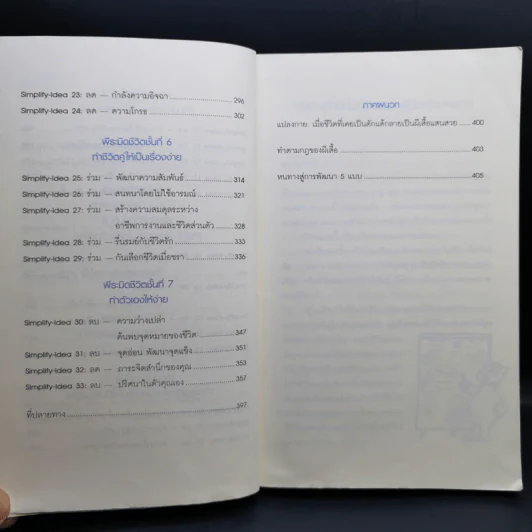 Simplify-Idea 23: ลด — กำลังความอิจฉา 296
Simplify-Idea 24: ลด — ความโกรธ 302
พีระมิดชีวิตชั้นที่ 6
ทำชีวิตคู่ให้เป็นเรื่องง่าย
Simplify-Idea 25: ร่วม — พัฒนาความสัมพันธ์ 314
Simplify-Idea 26: ร่วม — สนทนาโดยไม่ใช้อารมณ์ 321
Simplify-Idea 27: ร่วม — สร้างความสมดุลระหว่าง
อาชีพการงานและชีวิตส่วนตัว 328
Simplify-Idea 28: ร่วม — รื่นรมย์กับชีวิตรัก 333
Simplify-Idea 29: ร่วม — กันเลือกชีวิตเมื่อชรา 336
พีระมิดชีวิตชั้นที่ 7
ทำตัวเองให้ง่าย
Simplify-Idea 30: พบ — ความว่างเปล่า
ค้นพบจุดหมายของชีวิต 347
Simplify-Idea 31: พบ — จุดอ่อน พัฒนาจุดแข็ง 351
Simplify-Idea 32: ลด — ภาระจิตสำนึกของคุณ 353
Simplify-Idea 33: พบ — ปริศนาในตัวคุณเอง 357
ที่ปลายทาง 397
ภาคผนวก
แปลงกาย: เมื่อชีวิตที่เคยเป็นดักแด้กลายเป็นผีเสื้อแสนสวย 400
ทำตามกฎของผีเสื้อ 403
หนทางสู่การพัฒนา 5 แบบ 405